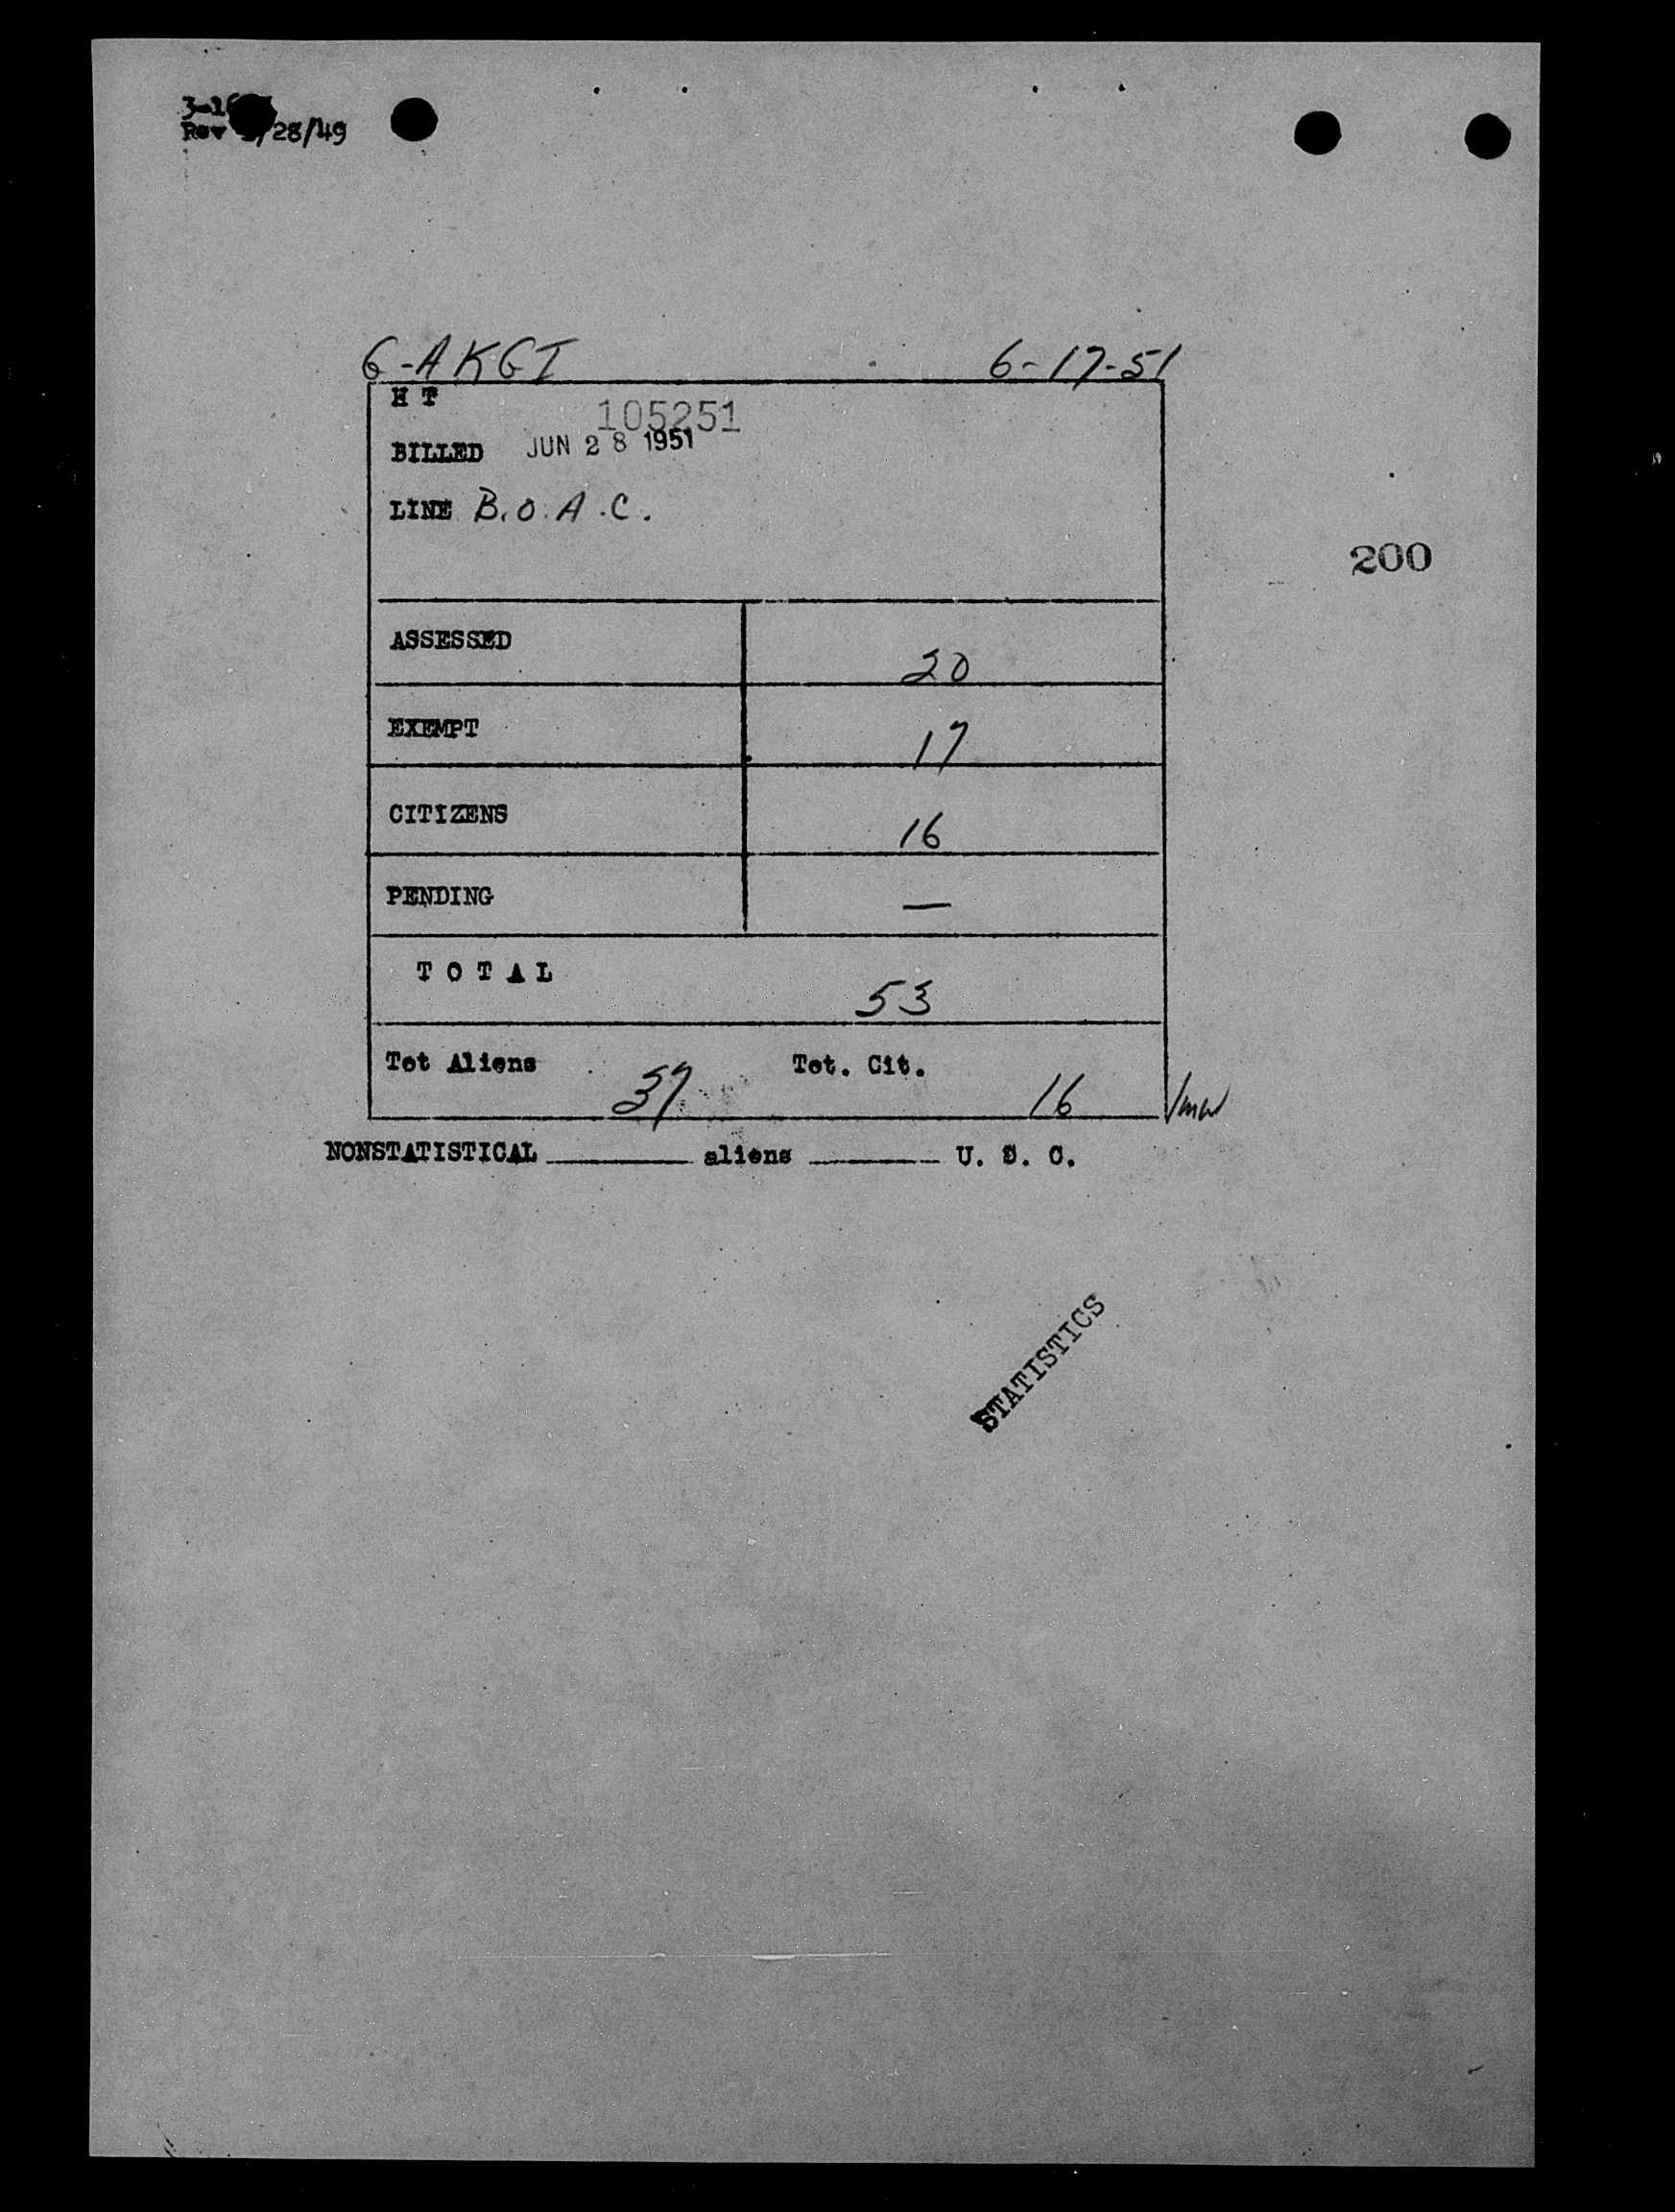 Rev /28/49
G-AKGI 6-17-51
H T
105251
BILLED JUN 28 1951
LINE B.O.A.C.
200
ASSESSED 20
EXEMPT 17
CITIZENS 16
PENDING —
TOTAL 53
Tot Aliens 37 Tot. Cit. 16
NONSTATISTICAL ______ aliens ______ U. S. C.
STATISTICS